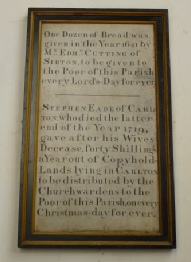 One Dozen of Bread was
given in the Year 1621 by
Mr. Edm. Cutting of
Sibton, to be given to
the Poor of this Parish
every Lord's Day for ever.
Stephen Eade of Carl
ton who died the latter
end of the Year 1719,
gave after his Wives
Decease, forty Shillings
a Year out of Copyhold
Lands lying in Carlton
to be distributed by the
Churchwardens to the
Poor of this Parish, on every
Christmas-day for ever.